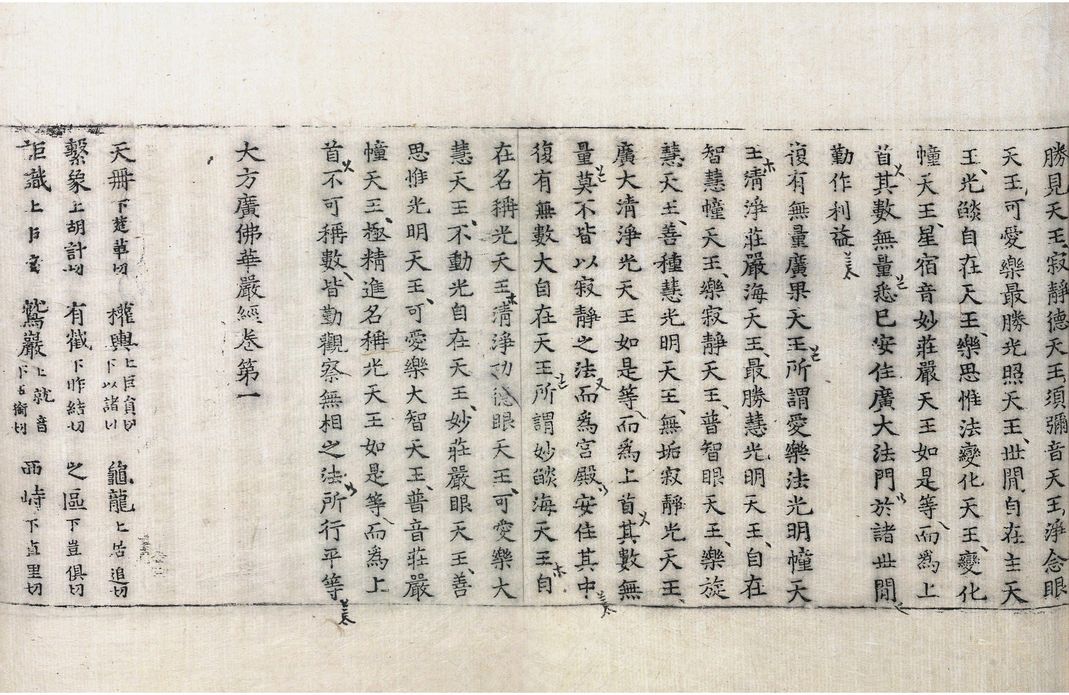 勝見天王寂靜德天王須彌音天王淨念眼
天王可愛樂最勝光照天王世閒自在主天
王光㷔自在天王樂思惟法變化天王變化
幢天王星宿音妙莊嚴天王如是等而爲上
首其數無量悉已安住廣大法門於諸世閒
勤作利益
復有無量廣果天王所謂愛樂法光明幢天
王淸淨莊嚴海天王最勝慧光明天王自在
智慧幢天王樂寂靜天王普智眼天王樂旋
慧天王善種慧光明天王無垢寂靜光天王
廣大淸淨光天王如是等而爲上首其數無
量莫不皆以寂靜之法而爲宮殿安住其中
復有無數大自在天王所謂妙㷔海天王自
在名稱光天王淸淨功德眼天王可愛樂大
慧天王不動光自在天王妙莊嚴眼天王善
思惟光明天王可愛樂大智天王普音莊嚴
幢天王極精進名稱光天王如是等而爲上
首不可稱數皆勤觀察無相之法所行平等
大方廣佛華嚴經卷第一
天冊下楚革切 權輿上巨貟切下以諸切 龜龍上居追切
繫象上胡計切 有截下昨結切 之區下豈俱切
詎識上巨 鷲巖上就音下五銜切 西峙下直里切